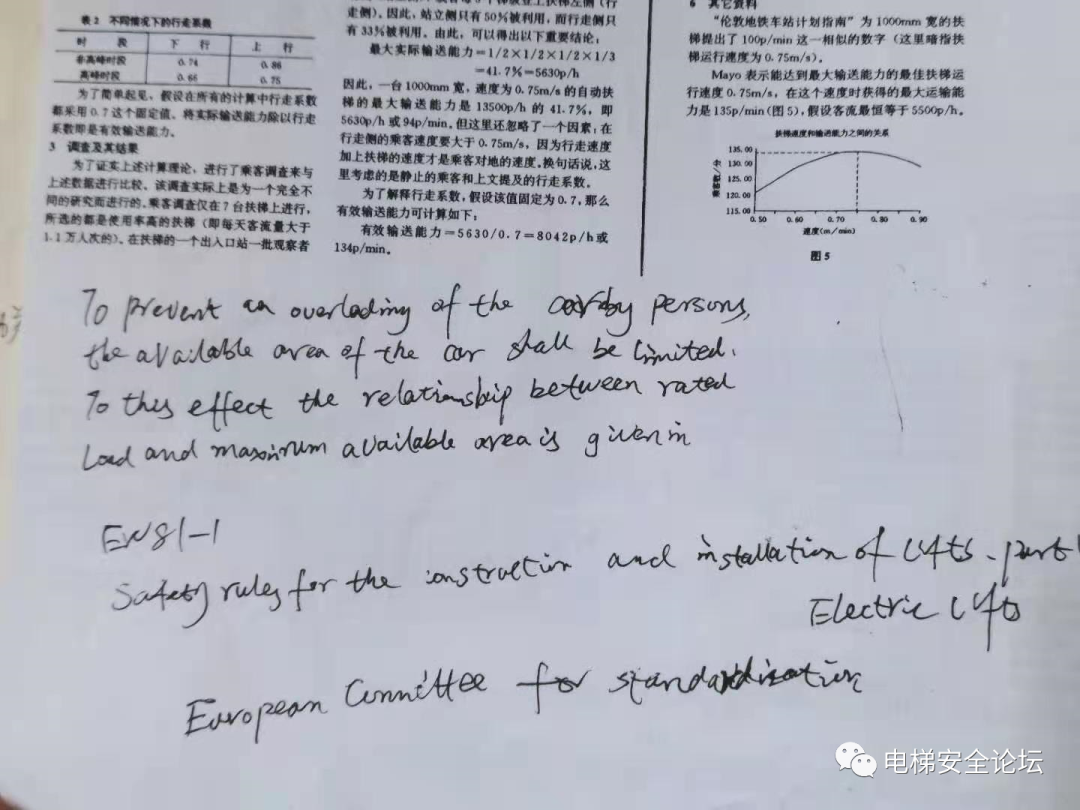 表2 不同情况下的行走系数
时 段 下 行 上 行
非高峰时段 0.74 0.86
高峰时段 0.65 0.75
为了简单起见,假设在所有的计算中行走系数
都采用0.7这个固定值。将实际输送能力除以行走
系数即是有效输送能力。
3 调查及其结果
为了证实上述计算理论,进行了乘客调查来与
上述数据进行比较。该调查实际上是为一个完全不
同的研究而进行的。乘客调查仅在7台扶梯上进行,
所选的都是使用率高的扶梯(即每天客流量大于
1.1万人次的)。在扶梯的一个出入口站一批观察者
走侧)。因此,站立侧只有50%被利用,而行走侧只
有33%被利用。由此,可以得出以下重要结论:
最大实际输送能力=1/2×1/2×1/2×1/3
=41.7%=5630p/h
因此,一台1000mm宽,速度为0.75m/s的自动扶
梯的最大输送能力是13500p/h的41.7%,即
5630p/h或94p/min。但这里还忽略了一个因素:在
行走侧的乘客速度要大于0.75m/s,因为行走速度
加上扶梯的速度才是乘客对地的速度。换句话说,这
里考虑的是静止的乘客和上文提及的行走系数。
为了解释行走系数,假设该值固定为0.7,那么
有效输送能力可计算如下:
有效输送能力=5630/0.7=8042p/h或
134p/min。
6 其它资料
“伦敦地铁车站计划指南”为1000mm宽的扶
梯提出了100p/min这一相似的数字(这里暗指扶
梯运行速度为0.75m/s)。
Mayo表示能达到最大输送能力的最佳扶梯运
行速度0.75m/s,在这个速度时获得的最大运输能
力是135p/min(图5),假设客流最恒等于5500p/h。
扶梯速度和输送能力之间的关系
135.00
130.00
125.00
120.00
115.00
0.50 0.60 0.70 0.80 0.90
速度(m/min)
图5
To prevent an overloading of the car by persons,
the available area of the car shall be limited.
To this effect the relationship between rated
Load and maximum available area is given in
EN81-1
Safety rules for the construction and installation of Lifts. part 1
Electric Lifts
European Committee for standardization
电梯安全论坛